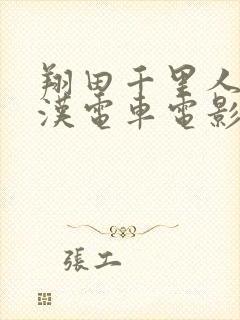 翔田千里人
漢電車電影
張工